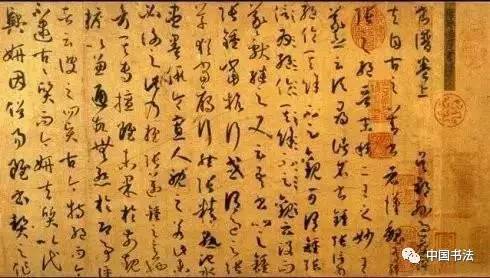 書譜卷上 吳郡孫過庭撰
夫自古之善書者漢魏有
鍾張之絕晉末稱二王之妙王
羲之云頃尋諸名書鍾張信
為絕倫其餘不足觀可謂鍾張云沒而
羲獻繼之又云吾書比之
鍾張鍾當抗行或謂過之張
草猶當鴈行然張精熟池水
盡墨假令寡人耽之若此未
必謝之此乃推張邁鍾之意也
考其專擅雖未果於前規
摭以兼通故無慚於即事評
者云彼之四賢古今特絕而今
不逮古古質而今妍夫質以代
興妍因俗易雖書契之作
中国书法